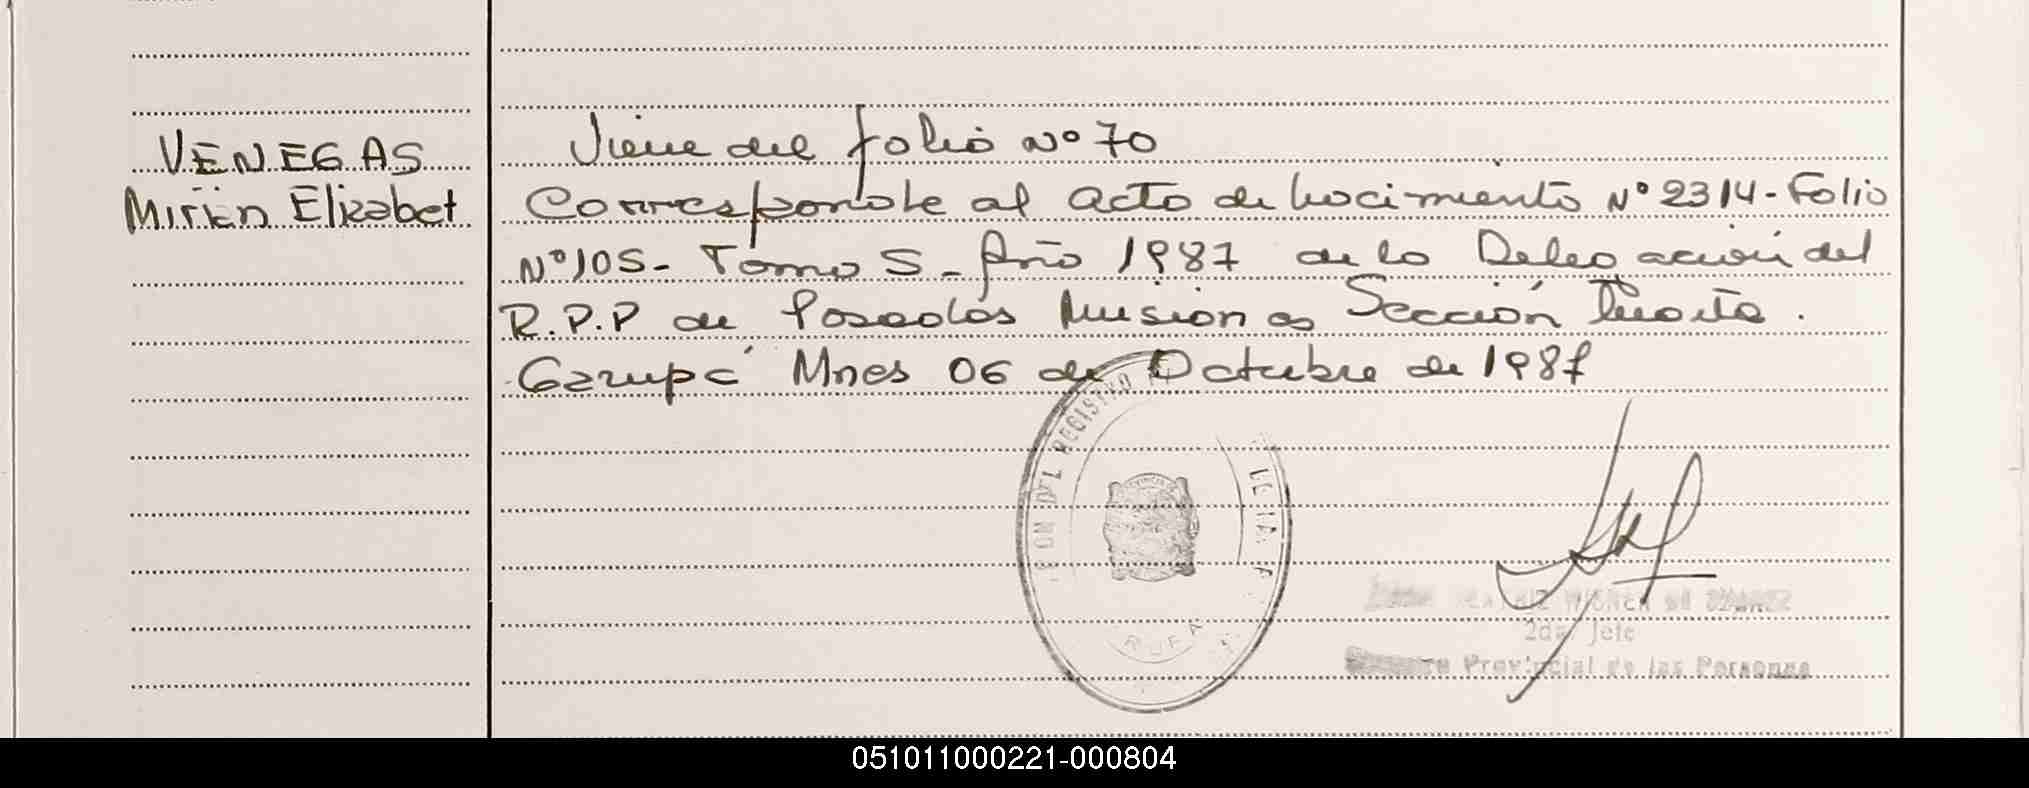 VENEGAS
Mirian Elizabet
Viene del folio Nº 70
Corresponde al acta de nacimiento Nº 2314 - Folio
Nº 105 - Tomo 5 - Año 1987 de la Delegación del
R.P.P de Posadas Misiones Sección Cuarta.
Garupá Mnes 06 de Octubre de 1987
ON DEL REGISTRO
2da Jefe
Provincial de las Personas
051011000221-000804